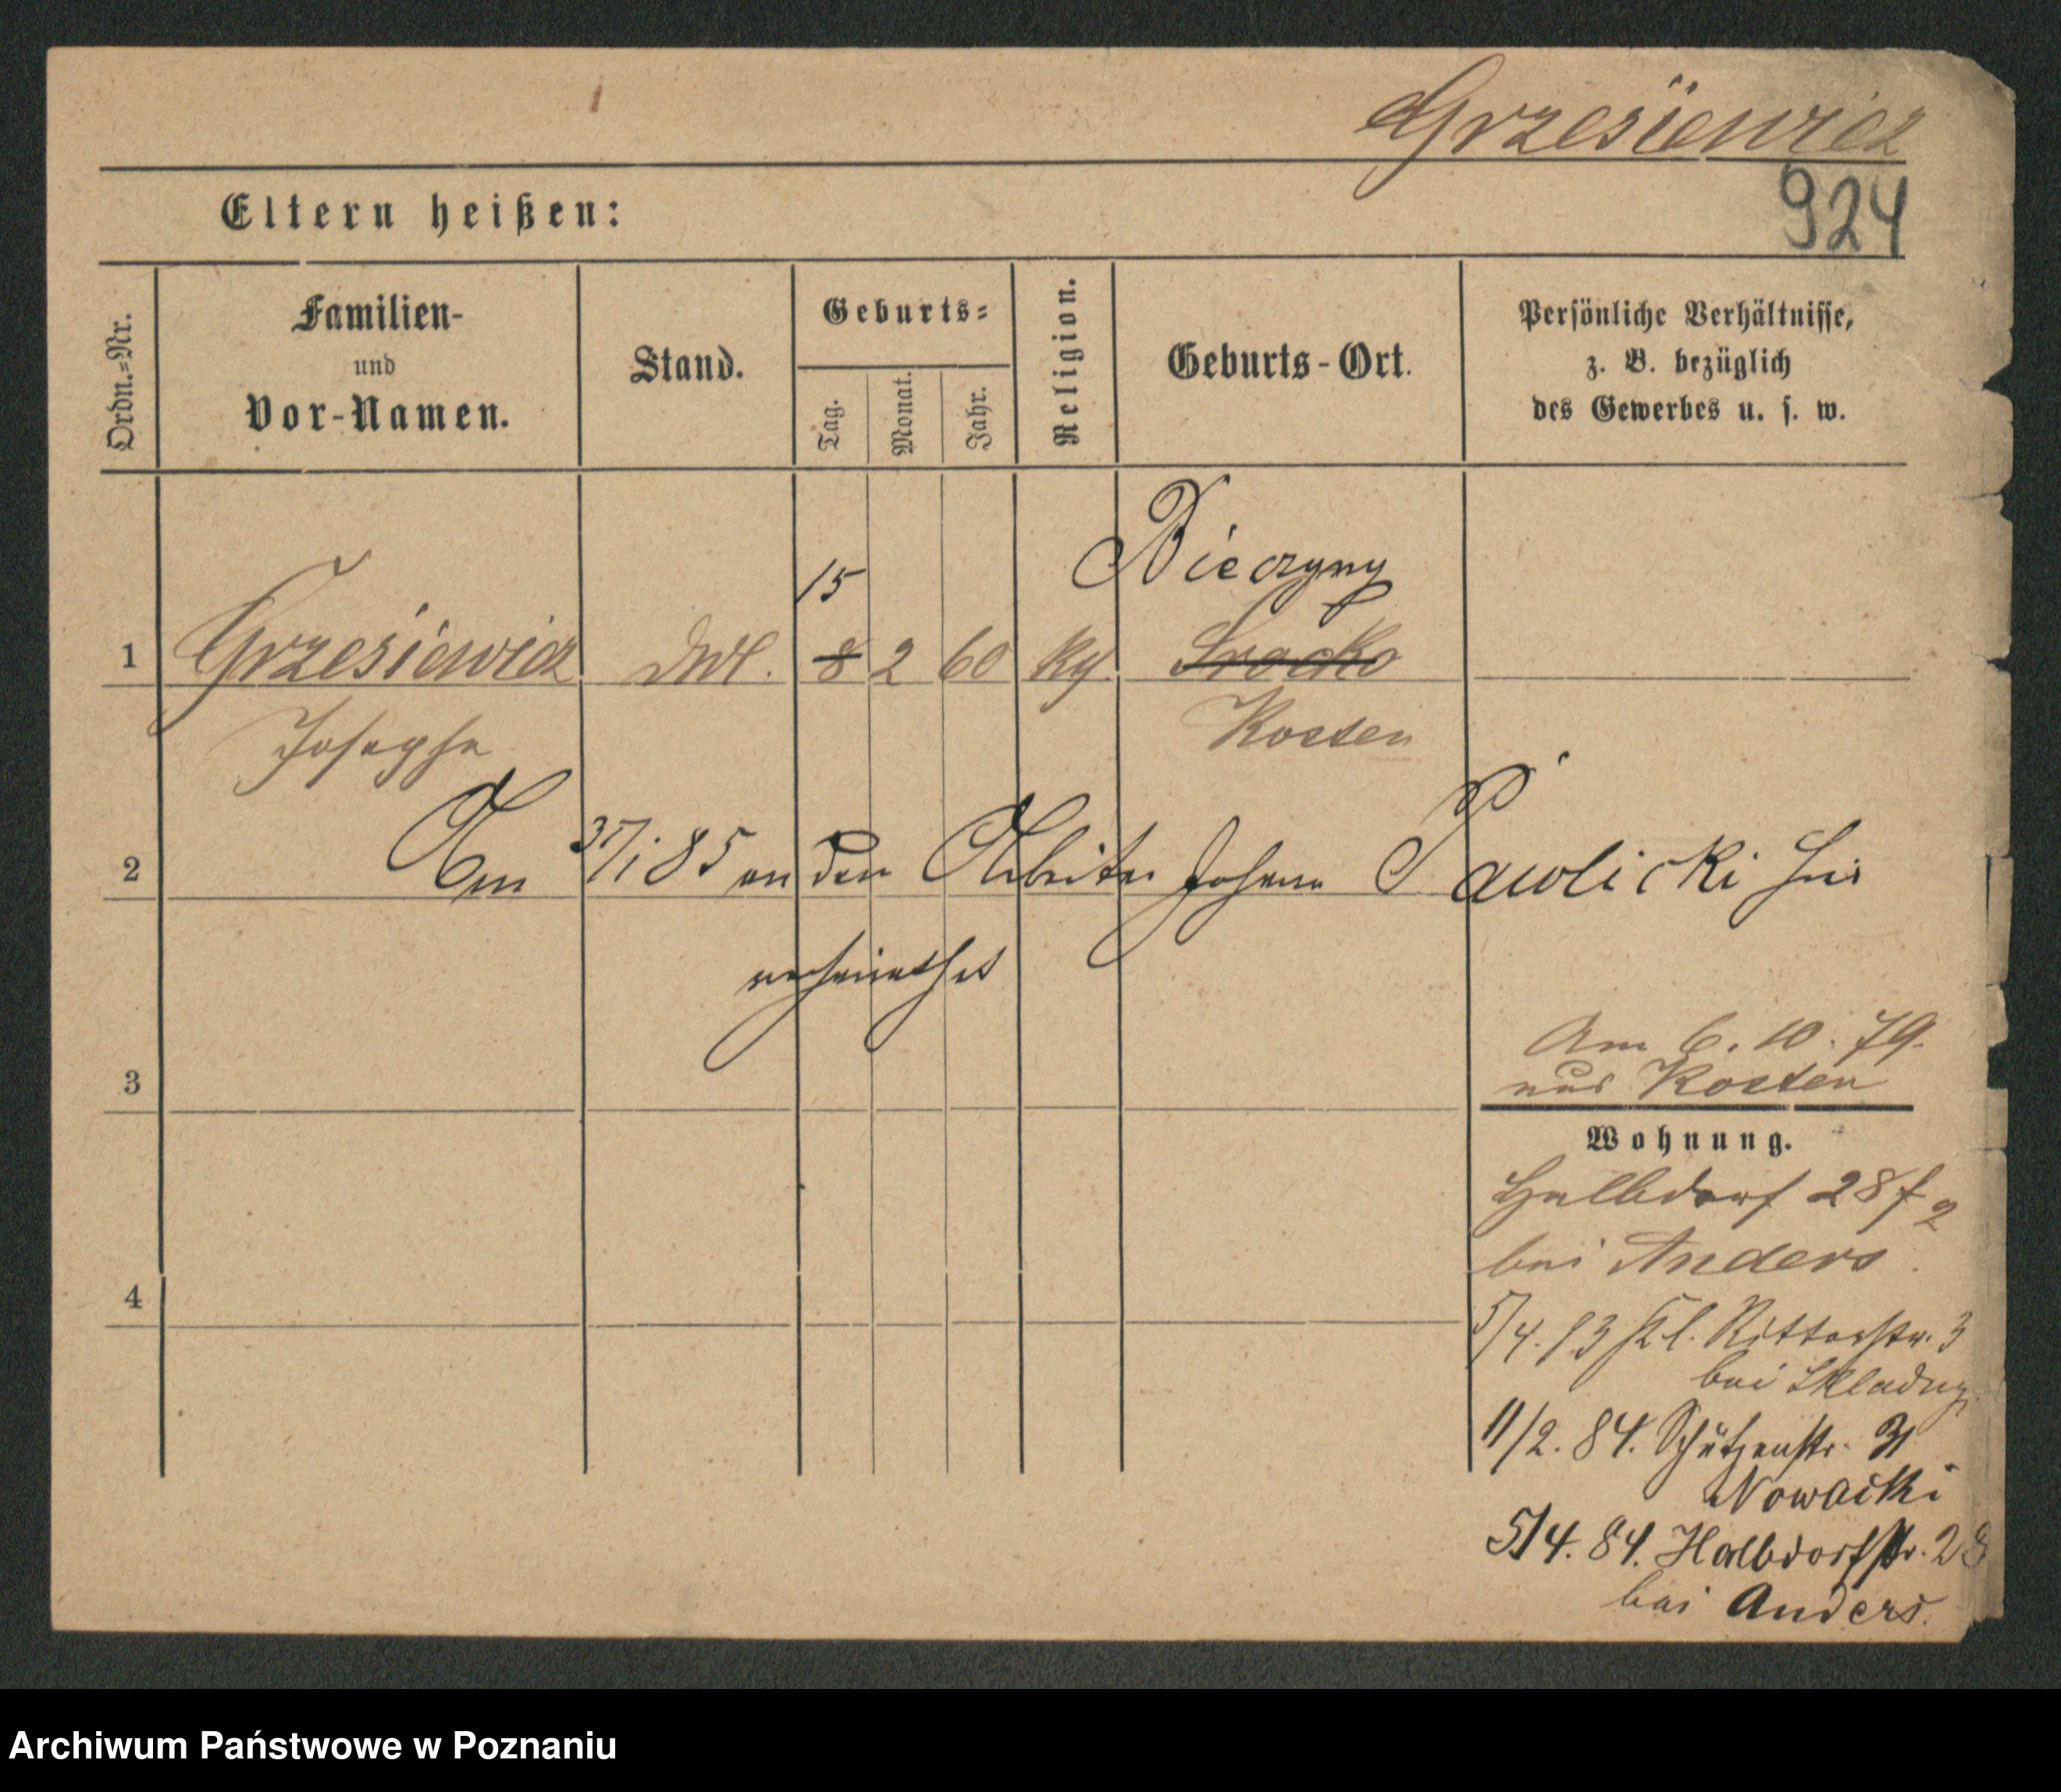 Grzesiewicz
924
Eltern heißen:
Ordn.-Nr.
Familien-
und
Vor-Namen.
Stand.
Geburts-
Tag.
Monat.
Jahr.
Religion.
Geburts-Ort.
Persönliche Verhältnisse,
z. B. bezüglich
des Gewerbes u. s. w.
Bieczyny
15
1 Grzesiewicz 8 2 60 Srocko
Josepha Kosten
2 Am /1 85 an den Arbeiter Johann Pawlicki hier
verheirathet
Am 6. 10. 79.
3 aus Kosten
Wohnung.
Halbdorf 28
bei Anders
4
5/4. 83 Kl. Ritterstr. 3
bei
11/2. 84. Schützenstr. 31
Nowacki
5/4. 84. Halbdorfstr. 28
bei Anders.
Archiwum Państwowe w Poznaniu